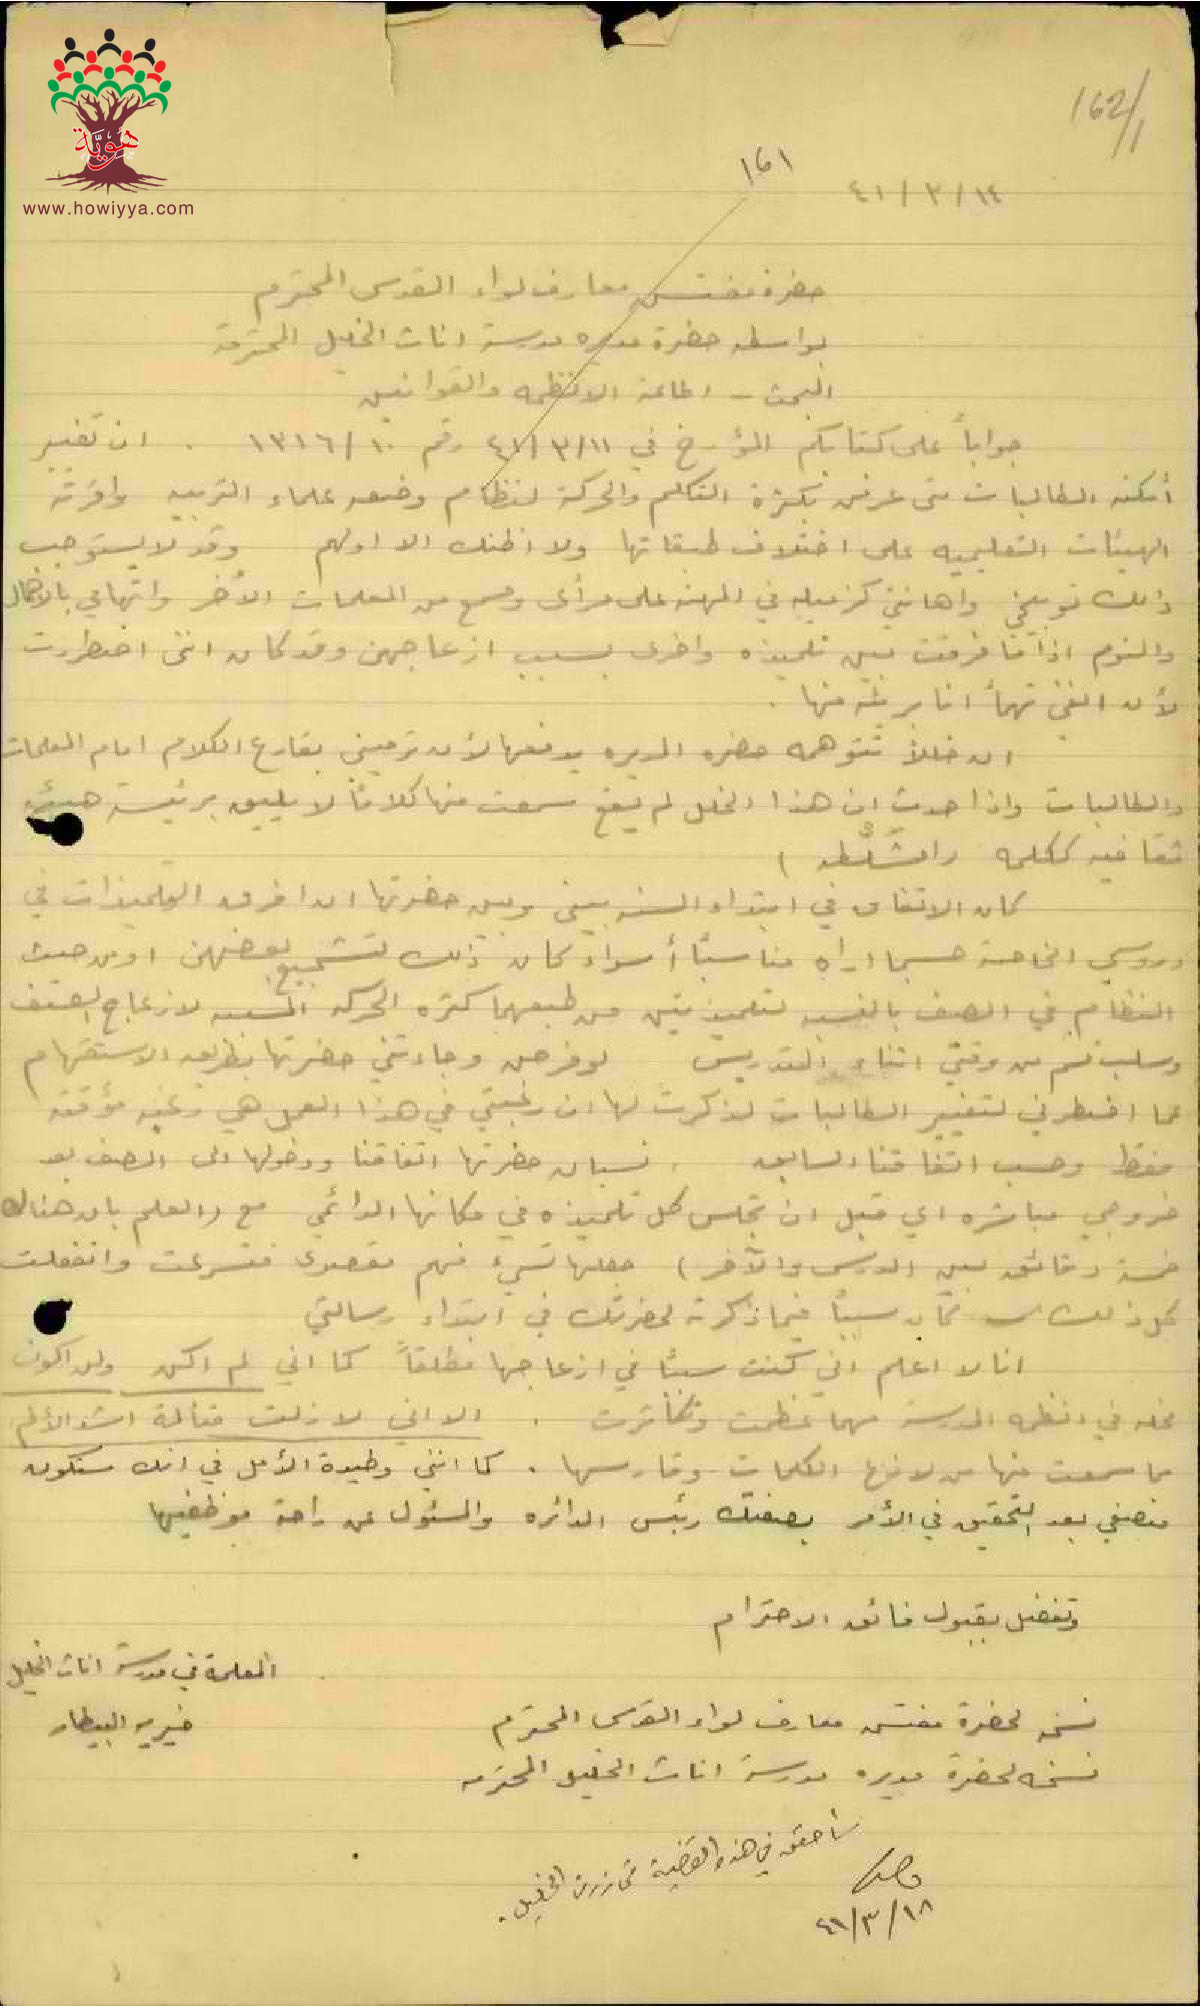 هَوِيَّة
www.howiyya.com
162/1
١٦١
٤١/٣/١٤
حضرة مفتش معارف لواء القدس المحترم
بواسطه حضرة مديره مدرسة اناث الخليل المحترمة
البحث - اطاعة الانظمه والقوانين
جواباً على كتابكم المؤرخ في ٤١/٣/١١ رقم ١٣١٦/١٠ . ان تغيير
أمكنه الطالبات متى عرفن بكثرة التكلم والحركة لنظام وضعه علماء التربيه واقرته
الهيئات التعليميه على اختلاف طبقاتها ولا اظنك الا اولهم وقد لا يستوجب
ذلك توبيخي واهانتي كزميله في المهنه على مرأى ومسمع من المعلمات الأخر واتهامي بالاهمال
والنوم اذا ما فرقت بين تلميذه واخرى بسبب ازعاجهن وقد كان انني اضطررت
لأن انفي تهماً انا بريئه منها .
ان خللاً تتوهمه حضره المديره يدفعها لأن ترميني بقارع الكلام امام المعلمات
والطالبات واذا حدث ان هذا الخلل لم يقع سمعت منها كلاماً لا يليق برئيسة هيئه
ثقافيه ككلمه
كان الاتفاق في ابتداء السنه بيني وبين حضرتها ان افرق التلميذات في
دروسي الخاصة حسبما اراه مناسباً أسواء كان ذلك لتشجيع بعضهن او من حيث
النظام في الصف بالنسبه لتلميذتين من طبعهما كثره الحركه المسببه لازعاج الصف
وسلب قسم من وقتي اثناء التدريس لو فرضن وجاءتني حضرتها بطريقه الاستفهام
عما اضطرني لتغيير الطالبات لذكرت لها ان رغبتي في هذا العمل هي رغبه مؤقته
فقط وحسب اتفاقنا السابق . نسيان حضرتها اتفاقنا ودخولها الى الصف بعد
خروجي مباشره اي قبل ان تجلس كل تلميذه في مكانها الدائمي مع (العلم بان هناك
خمسة دقائق بين الدرس والآخر) جعلها تسيء فهم مقصدي فتسرعت وانفعلت
كل ذلك كان سبباً فيما ذكرته لحضرتك في ابتداء رسالتي
انا لا اعلم اني كنت سبباً في ازعاجها مطلقاً كما اني لم اكن ولن اكون
مخله في انظمه المدرسة مهما عظمت وتكاثرت . الا اني لا زلت متألمة اشد الألم
مما سمعت منها من لاذع الكلمات وقارسها . كما انني وطيدة الأمل في انك ستكون
منصفي بعد التحقيق في الأمر بصفتك رئيس الدائره والمسئول عن راحة موظفيها
وتفضل بقبول فائق الاحترام
المعلمة في مدرسة اناث الخليل
خيريه البيطار
نسخه لحضرة مفتش معارف لواء القدس المحترم
نسخه لحضرة مديره مدرسة اناث الخليل المحترمه
سأحقق في هذه القضية متى زرت الخليل .
٤١/٣/١٨